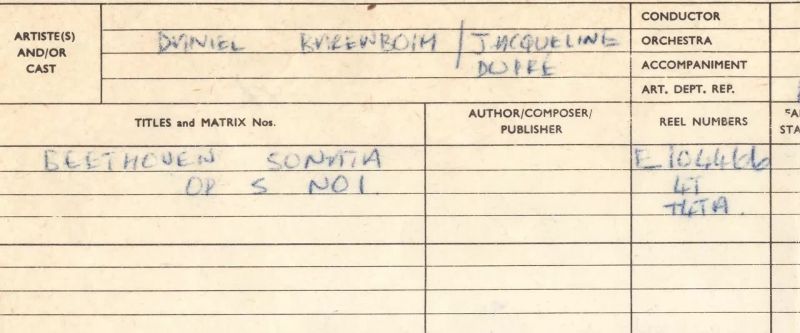 ARTISTE(S)
AND/OR
CAST
DANIEL BARENBOIM / JACQUELINE
DUPRE
CONDUCTOR
ORCHESTRA
ACCOMPANIMENT
ART. DEPT. REP.
TITLES and MATRIX Nos.
AUTHOR/COMPOSER/
PUBLISHER
REEL NUMBERS
BEETHOVEN SONATA
OP 5 NO 1.
E104466
4T